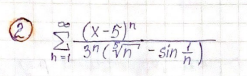 ② \sum_{n=1}^{\infty} \frac{(x-5)^n}{3^n(\sqrt[3]{n} - \sin\frac{1}{n})}